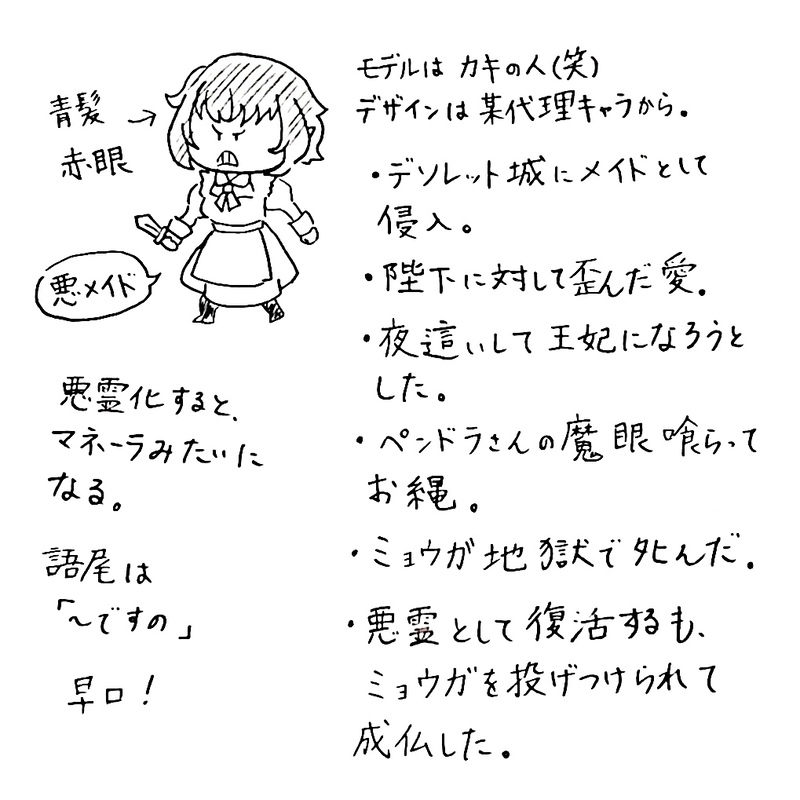 青髪→
赤眼
悪メイド
悪霊化すると、
マネーラみたいに
なる。
語尾は
「～ですの」
早口！
モデルは カキの人(笑)
デザインは某代理キャラから。
・デソレット城にメイドとして
侵入。
・陛下に対して歪んだ愛。
・夜這いして王妃になろうと
した。
・ペンドラさんの魔眼喰らって
お縄。
・ミョウガ地獄で死んだ。
・悪霊として復活するも、
ミョウガを投げつけられて
成仏した。